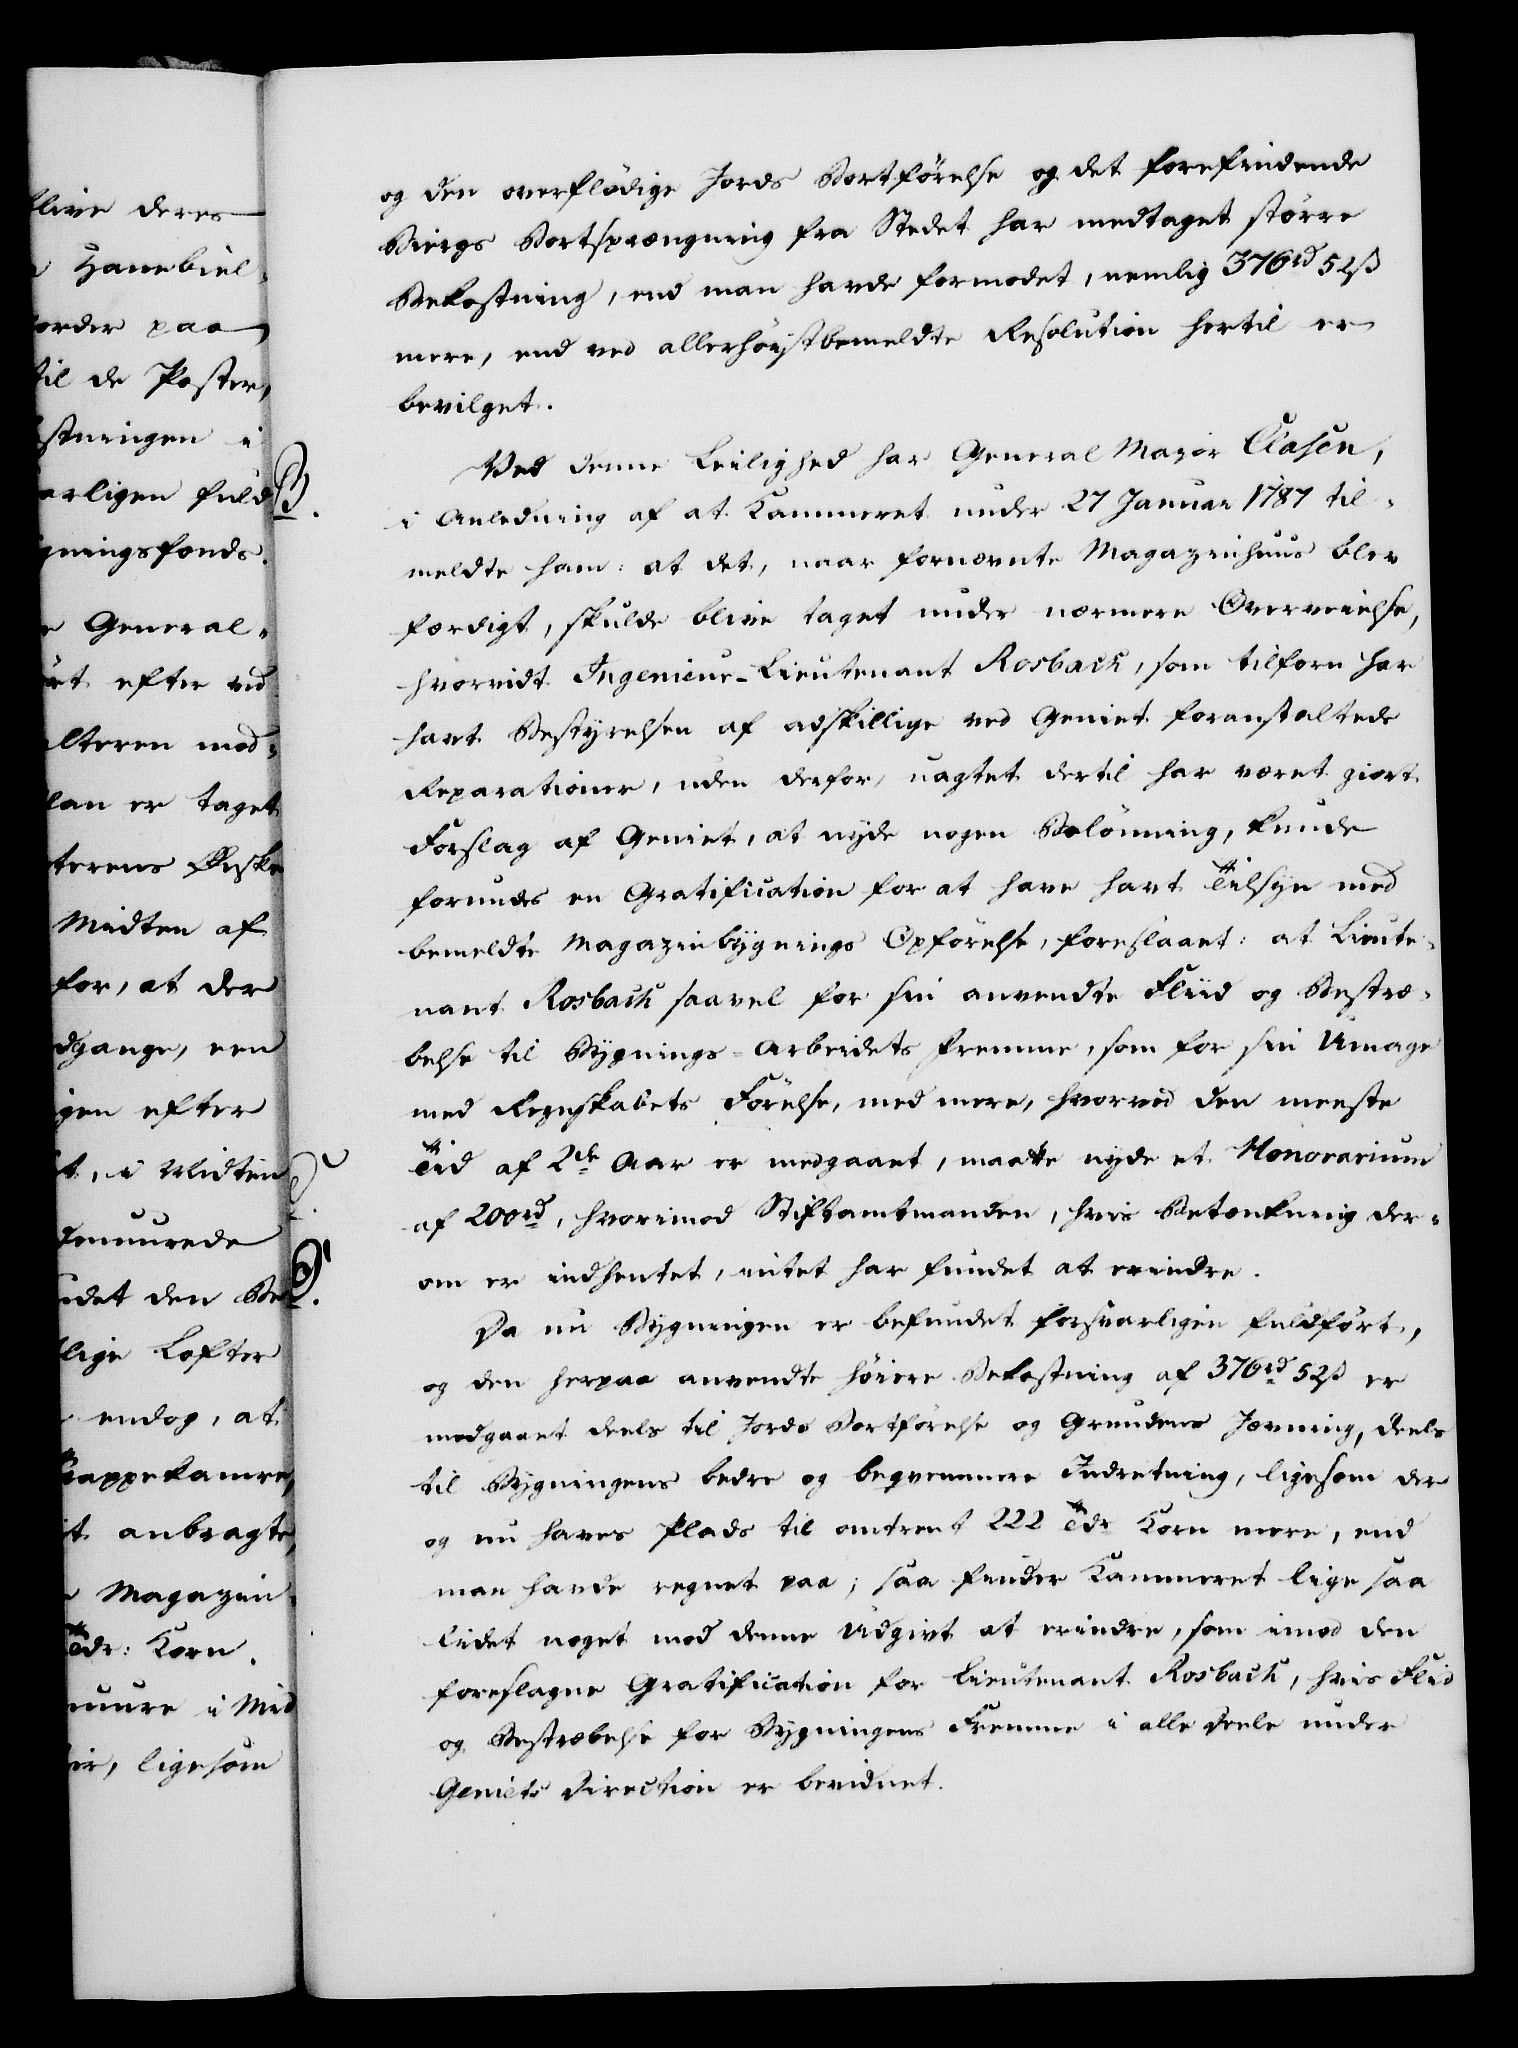 og den overflødige Jords Bortførelse og det forefindende
Biergs Bortsprængning fra Stedet har medtaget større
Bekostning, end man havde formodet, nemlig 376rd 52ß
mere, end ved allerhøystbemeldte Resolution hertil er
bevilget.
Ved denne Leilighed har General Major Clasen,
i Anledning af at Kammeret under 27 Januar 1787 til-
meldte ham: at det, naar fornævnte Magazinhuus blev
færdigt, skulde blive taget under nærmere Overveielse,
hvorvidt Ingenieur-Lieutenant Rosbach, som tilforn har
havt Bestyrelsen af adskillige ved Geniet foranstaltede
Reparationer, uden derfor, uagtet dertil har været giort
Forslag af Geniet, at nyde nogen Belønning, kunde
forundes en Gratification for at have havt Tilsyn med
bemeldte Magazinbygnings Opførelse, foreslaaet: at Lieute-
nant Rosbach saavel for sin anvendte Fliid og Bestræ-
belse til Bygnings-Arbeidets Fremme, som for sin Umage
med Regnskabets Førelse, med mere, hvorved den meeste
Tid af 2de Aar er medgaaet, maatte nyde et Honorarium
af 200rd, hvorimod Stiftamtmanden, hvis Betænkning der-
om er indhentet, intet har fundet at erindre.
Da nu Bygningen er befundet forsvarligen fuldført,
og den herpaa anvendte høiere Bekostning af 376rd 52ß er
medgaaet deels til Jords Bortførelse og Grundens Jævning, deels
til Bygningens bedre og beqvemmere Indretning, ligesom der
og nu haves Plads til omtrent 222 Tdr Korn mere, end
man havde regnet paa; saa finder Kammeret lige saa
lidet noget mod denne Udgivt at erindre, som imod den
foreslagne Gratification for Lieutenant Rosbach, hvis Flid
og Bestræbelse for Bygningens Fremme i alle Deele under
Geniets Direction er bevidnet.